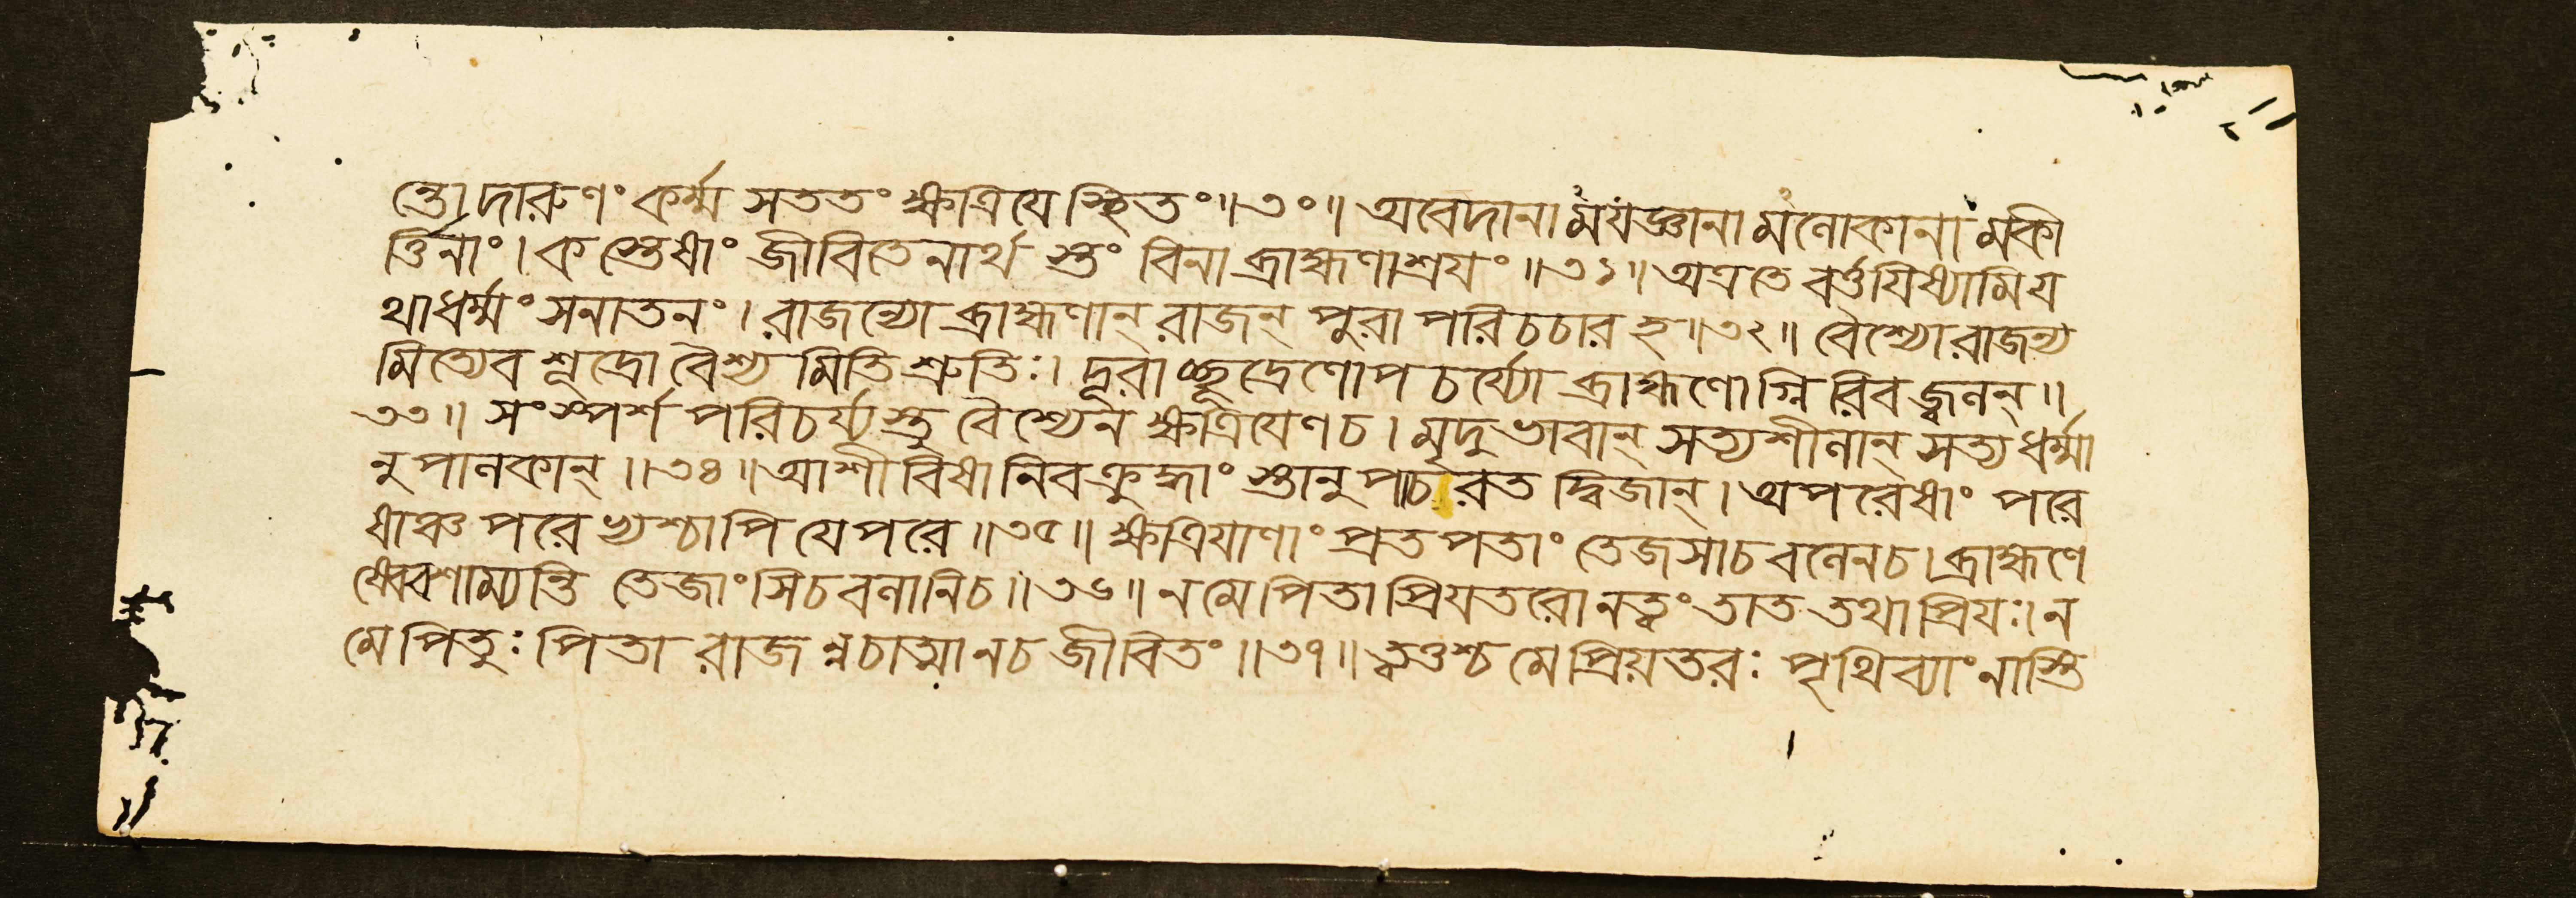 ন্তো দারুণং কর্ম্ম সততং ক্ষত্রিয়ে স্থিতং॥৩০॥ অবেদানামযজ্ঞানামলোকানামকী
র্ত্তিনাং। কস্তেষাং জীবিতেনার্থ স্তুং বিনা ব্রাহ্মণাশ্রয়ং॥৩১॥ অত্রতে বর্ত্তয়িষ্যামি য
থাধর্ম্মং সনাতনং। রাজন্যো ব্রাহ্মণান্ রাজন্ পুরা পরিচচার হ॥৩২॥ বৈশ্যো রাজন্য
মিত্যেব শূদ্রো বৈশ্যমিতি শ্রুতিঃ। দূরাচ্ছূদ্রেণোপচর্য্যো ব্রাহ্মণোগ্নিরিবজ্জ্বলন্॥
৩৩॥ সংস্পর্শ পরিচর্য্যস্তু বৈশ্যেন ক্ষত্রিয়েণচ। মৃদুভাবান্ সত্যশীলান্ সত্যধর্ম্মা
নুপালকান্॥৩৪॥ আশীবিষানিবক্রুদ্ধাং স্তানুপাচরত দ্বিজান্। অপরেষাং পরে
ষাঞ্চ পরেভ্যশ্চাপি যেপরে॥৩৫॥ ক্ষত্রিয়াণাং প্রতপতাং তেজসাচ বলেনচ। ব্রাহ্মণে
ষ্বেবশাম্যন্তি তেজাংসিচ বলানিচ॥৩৬॥ ন মে পিতা প্রিয়তরো নত্বং তাত তথা প্রিয়ঃ। ন
মে পিতুঃ পিতা রাজন্নচাত্মা নচ জীবিতং॥৩৭॥ ত্বত্তশ্চ মে প্রিয়তরঃ পৃথিব্যাং নাস্তি